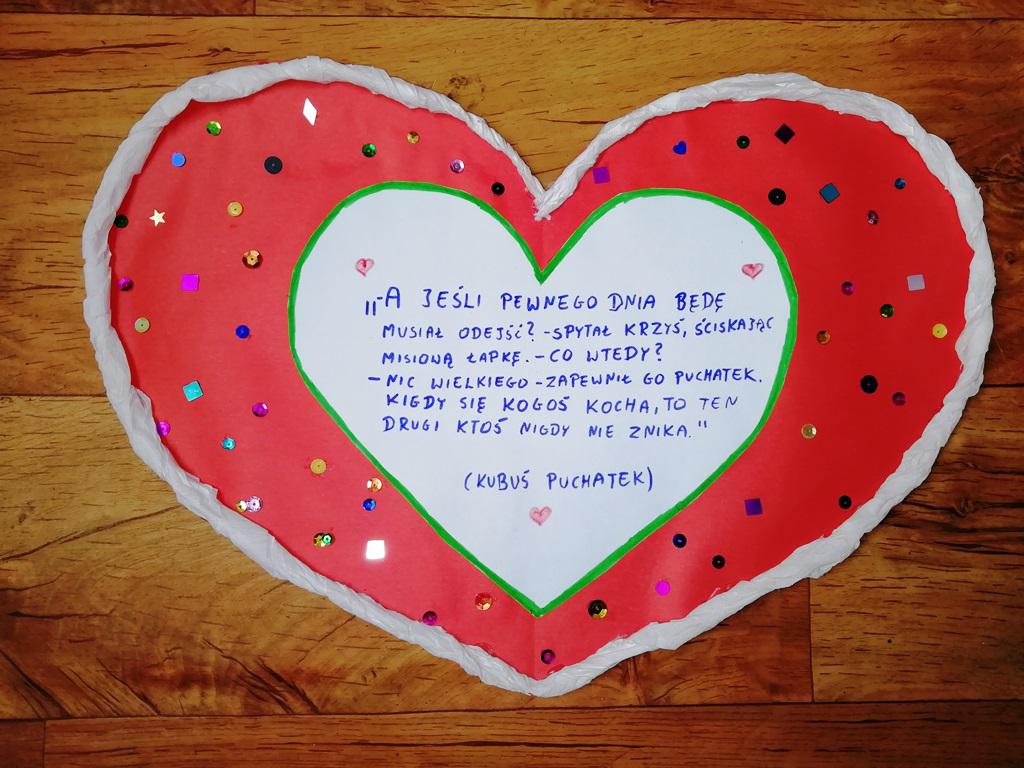 „-A JEŚLI PEWNEGO DNIA BĘDĘ
MUSIAŁ ODEJŚĆ? -SPYTAŁ KRZYŚ, ŚCISKAJĄC
MISIOWĄ ŁAPKĘ. -CO WTEDY?
-NIC WIELKIEGO -ZAPEWNIŁ GO PUCHATEK.
KIGDY SIĘ KOGOŚ KOCHA, TO TEN
DRUGI KTOŚ NIGDY NIE ZNIKA."
(KUBUŚ PUCHATEK)